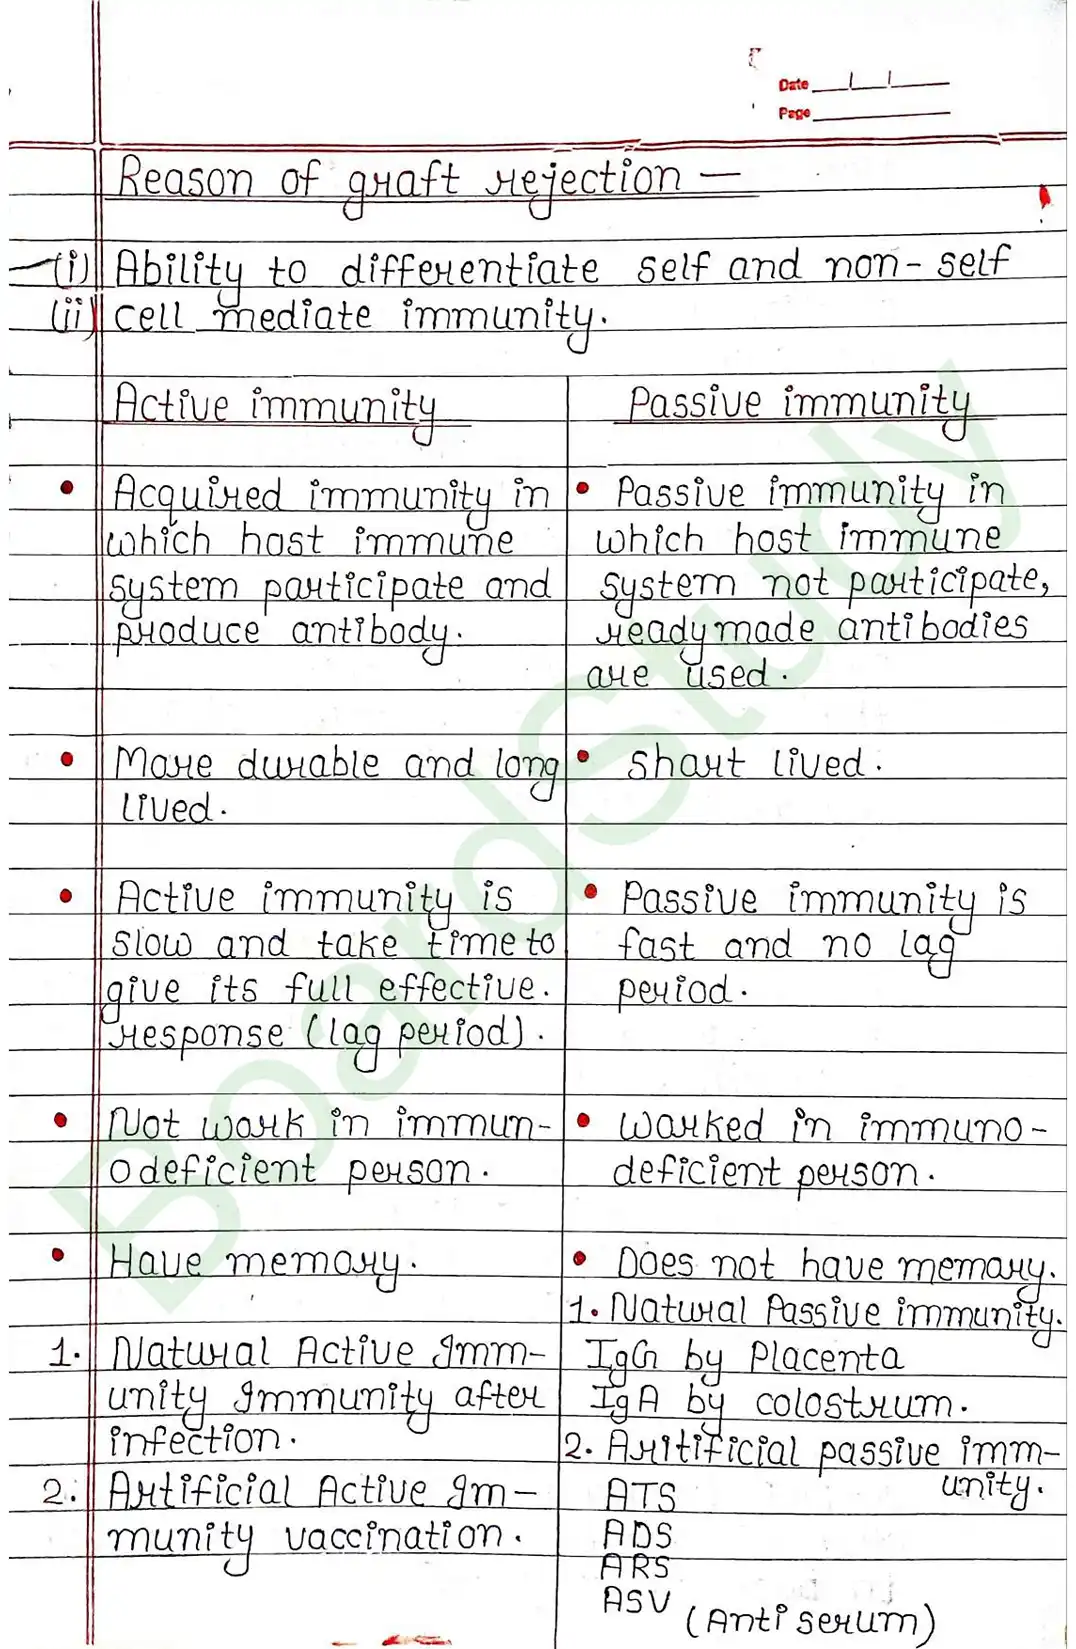 Date
Page
Reason of graft rejection —
(i) Ability to differentiate self and non-self
(ii) cell mediate immunity.
Active immunity
• Acquired immunity in
which host immune
system participate and
produce antibody.
• More durable and long
lived.
• Active immunity is
slow and take time to
give its full effective.
response (lag period).
• Not work in immun-
odeficient person.
• Have memory.
1. Natural Active Imm-
unity Immunity after
infection.
2. Artificial Active Im-
munity vaccination.
Passive immunity
• Passive immunity in
which host immune
system not participate,
readymade antibodies
are used.
• Short lived.
• Passive immunity is
fast and no lag
period.
• Worked in immuno-
deficient person.
• Does not have memory.
1. Natural Passive immunity.
IgG by Placenta
IgA by colostrum.
2. Aritificial passive imm-
unity.
ATS
ADS
ARS
ASV (Anti serum)
BoardStudy